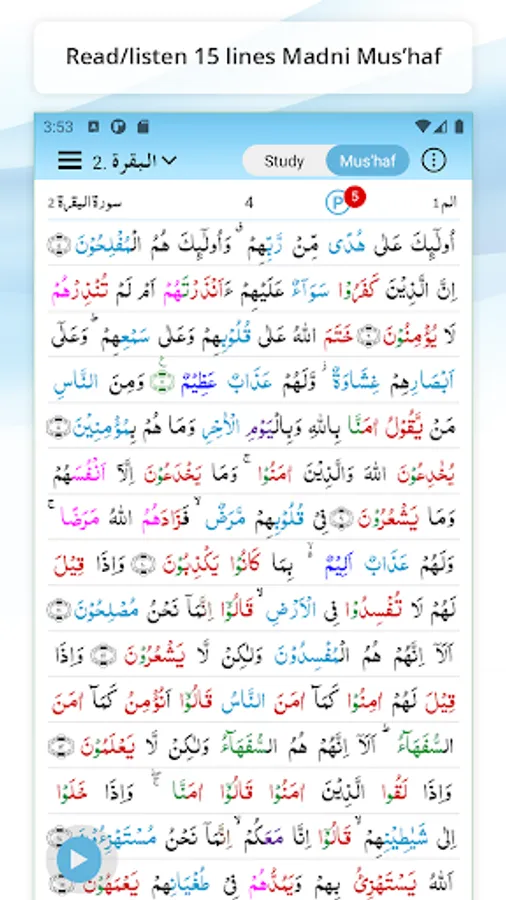 Read/listen 15 lines Madni Mus’haf
3:53
2. البقرة Study Mus'haf
سورة البقرة 2 4 P 5 الم 1
اُولٰٓئِكَ عَلٰى هُدًى مِّنْ رَّبِّهِمْ ۗ وَاُولٰٓئِكَ هُمُ الْمُفْلِحُوْنَ
اِنَّ الَّذِيْنَ كَفَرُوْا سَوَآءٌ عَلَيْهِمْ ءَاَنْذَرْتَهُمْ اَمْ لَمْ تُنْذِرْهُمْ
لَا يُؤْمِنُوْنَ خَتَمَ اللهُ عَلٰى قُلُوْبِهِمْ وَعَلٰى سَمْعِهِمْ ۗ وَعَلٰٓى
اَبْصَارِهِمْ غِشَاوَةٌ ۫ وَّلَهُمْ عَذَابٌ عَظِيْمٌ وَمِنَ النَّاسِ
مَنْ يَّقُوْلُ اٰمَنَّا بِاللهِ وَبِالْيَوْمِ الْاٰخِرِ وَمَا هُمْ بِمُؤْمِنِيْنَ
يُخٰدِعُوْنَ اللهَ وَالَّذِيْنَ اٰمَنُوْا ۚ وَمَا يَخْدَعُوْنَ اِلَّآ اَنْفُسَهُمْ
وَمَا يَشْعُرُوْنَ فِيْ قُلُوْبِهِمْ مَّرَضٌ ۙ فَزَادَهُمُ اللهُ مَرَضًا ۚ
وَلَهُمْ عَذَابٌ اَلِيْمٌ ۙ بِمَا كَانُوْا يَكْذِبُوْنَ وَاِذَا قِيْلَ
لَهُمْ لَا تُفْسِدُوْا فِى الْاَرْضِ ۙ قَالُوْٓا اِنَّمَا نَحْنُ مُصْلِحُوْنَ
اَلَآ اِنَّهُمْ هُمُ الْمُفْسِدُوْنَ وَلٰكِنْ لَّا يَشْعُرُوْنَ وَاِذَا
قِيْلَ لَهُمْ اٰمِنُوْا كَمَآ اٰمَنَ النَّاسُ قَالُوْٓا اَنُؤْمِنُ كَمَآ اٰمَنَ
السُّفَهَآءُ ۗ اَلَآ اِنَّهُمْ هُمُ السُّفَهَآءُ وَلٰكِنْ لَّا يَعْلَمُوْنَ
وَاِذَا لَقُوا الَّذِيْنَ اٰمَنُوْا قَالُوْٓا اٰمَنَّا ۖۚ وَاِذَا خَلَوْا
اِلٰى شَيٰطِيْنِهِمْ ۙ قَالُوْٓا اِنَّا مَعَكُمْ ۙ اِنَّمَا نَحْنُ مُسْتَهْزِءُوْنَ
اَللهُ يَسْتَهْزِئُ بِهِمْ وَيَمُدُّهُمْ فِيْ طُغْيَانِهِمْ يَعْمَهُوْنَ